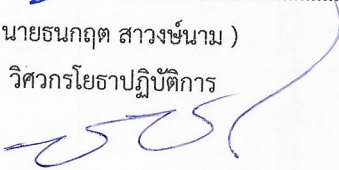 นายธนกฤต สาวงษ์นาม )
วิศวกรโยธาปฏิบัติการ